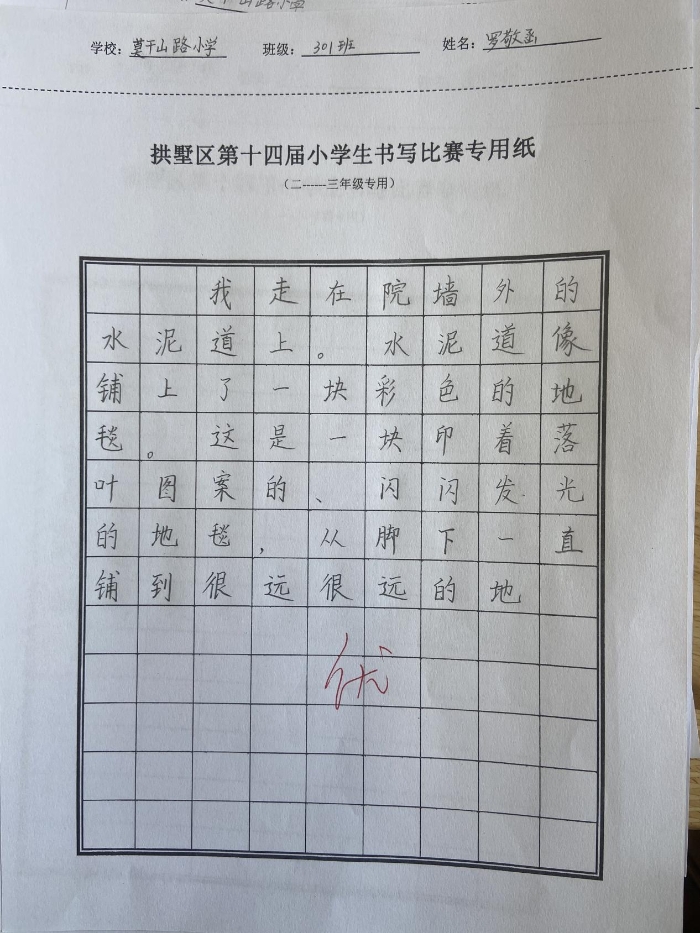 学校：莫干山路小学 班级：301班 姓名：罗敬函
拱墅区第十四届小学生书写比赛专用纸
（二------三年级专用）
我走在院墙外的
水泥道上。水泥道像
铺上了一块彩色的地
毯。这是一块印着落
叶图案的、闪闪发光
的地毯，从脚下一直
铺到很远很远的地
优